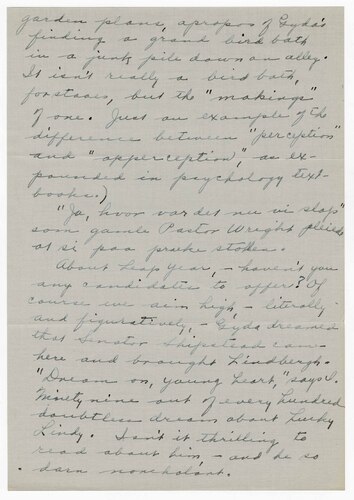 garden plans, apropos of Gyda's
finding a grand bird bath
in a junk pile down an alley.
It isn't really a bird bath,
forstaaes, but the "makings"
of one. Just an example of the
difference between "perception"
and "apperception", as ex-
pounded in psychology text-
books.)
"Ja, hvor var det nu vi slap"
som gamle Pastor Wright pleide
at si paa præke stolen.
About Leap Year, – haven't you
any candidates to offer? Of
course we aim high, – literally
and figuratively, – Gyda dreamed
that Senator Shipstead came
here and brought Lindbergh.
"Dream on, young heart," says I.
Ninety nine out of every hundred
doubtless dream about Lucky
Lindy. Isn't it thrilling to
read about him – and he so
darn nonchalant.